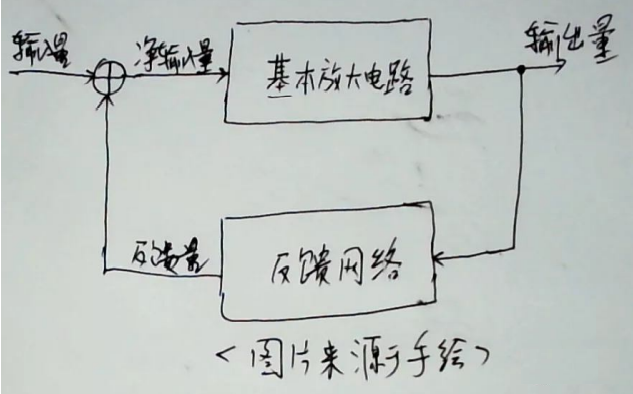 输入量
净输入量
基本放大电路
输出量
反馈量
反馈网络
<图片来源于手绘>